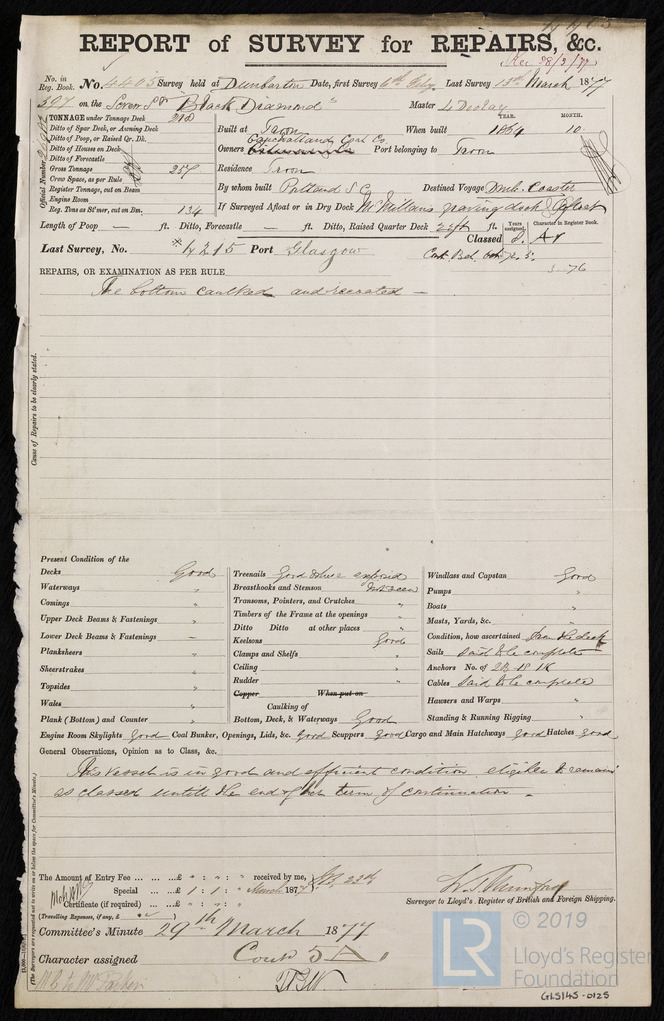 REPORT of SURVEY for REPAIRS, &c.
Rec 28/3/77
No. in Reg. Book. No. 4403 Survey held at Dumbarton Date, first Survey 6th Feby. Last Survey 13th March 1877
397 on the Screw Sr "Black Diamond" Master
TONNAGE under Tonnage Deck 218
Ditto of Spar Deck, or Awning Deck
Ditto of Poop, or Raised Qr. Dk.
Ditto of Houses on Deck
Ditto of Forecastle
Gross Tonnage 257
Crew Space, as per Rule
Register Tonnage, cut on Beam
Engine Room
Reg. Tons as St'mer, cut on Bm. 134
Official Number
Built at Troon When built YEAR. 1864 MONTH. 10
Owners Coal Co. Port belonging to Troon
Residence Troon
By whom built Portland S Co Destined Voyage Coaster
If Surveyed Afloat or in Dry Dock McMillans graving dock & Afloat
Length of Poop — ft. Ditto, Forecastle — ft. Ditto, Raised Quarter Deck ft. Years assigned. Character in Register Book.
Last Survey, No. *4215 Port Glasgow Classed A1
Cont. 5.
76
REPAIRS, OR EXAMINATION AS PER RULE
The bottom caulked and —
Cause of Repairs to be clearly stated.
Present Condition of the
Decks Good
Waterways "
Comings "
Upper Deck Beams & Fastenings "
Lower Deck Beams & Fastenings —
Planksheers "
Sheerstrakes "
Topsides "
Wales "
Plank (Bottom) and Counter "
Treenails Good where exposed
Breasthooks and Stemson Not seen
Transoms, Pointers, and Crutches "
Timbers of the Frame at the openings "
Ditto Ditto at other places "
Keelsons Good
Clamps and Shelfs "
Ceiling "
Rudder "
Copper When put on
Caulking of
Bottom, Deck, & Waterways Good
Windlass and Capstan Good
Pumps "
Boats "
Masts, Yards, &c. "
Condition, how ascertained From the deck
Sails Said to be complete
Anchors No. of 2B 1S 1K
Cables Said to be complete
Hawsers and Warps "
Standing & Running Rigging "
Engine Room Skylights Good Coal Bunker, Openings, Lids, &c. Good Scuppers Good Cargo and Main Hatchways Good Hatches Good
General Observations, Opinion as to Class, &c.
This vessel is in good and efficient condition eligible to remain
as classed untill the end of her term of continuation —
(The Surveyors are requested not to write on or below the space for Committee's Minute.)
The Amount of Entry Fee ... ... ...£ " : " : " received by me,
Special ... ...£ 1 : 1 : " March 1877
Certificate (if required) ... ...£ " : " : "
(Travelling Expenses, if any, £ )
Surveyor to Lloyd's Register of British and Foreign Shipping.
Committee's Minute 29th March 1877
Character assigned Contd 5 A
© 2019
LR
Lloyd's Register
Foundation
GLS145-0125